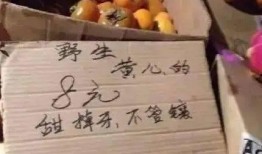 野生
黄心的
8元
甜掉牙，不管镶